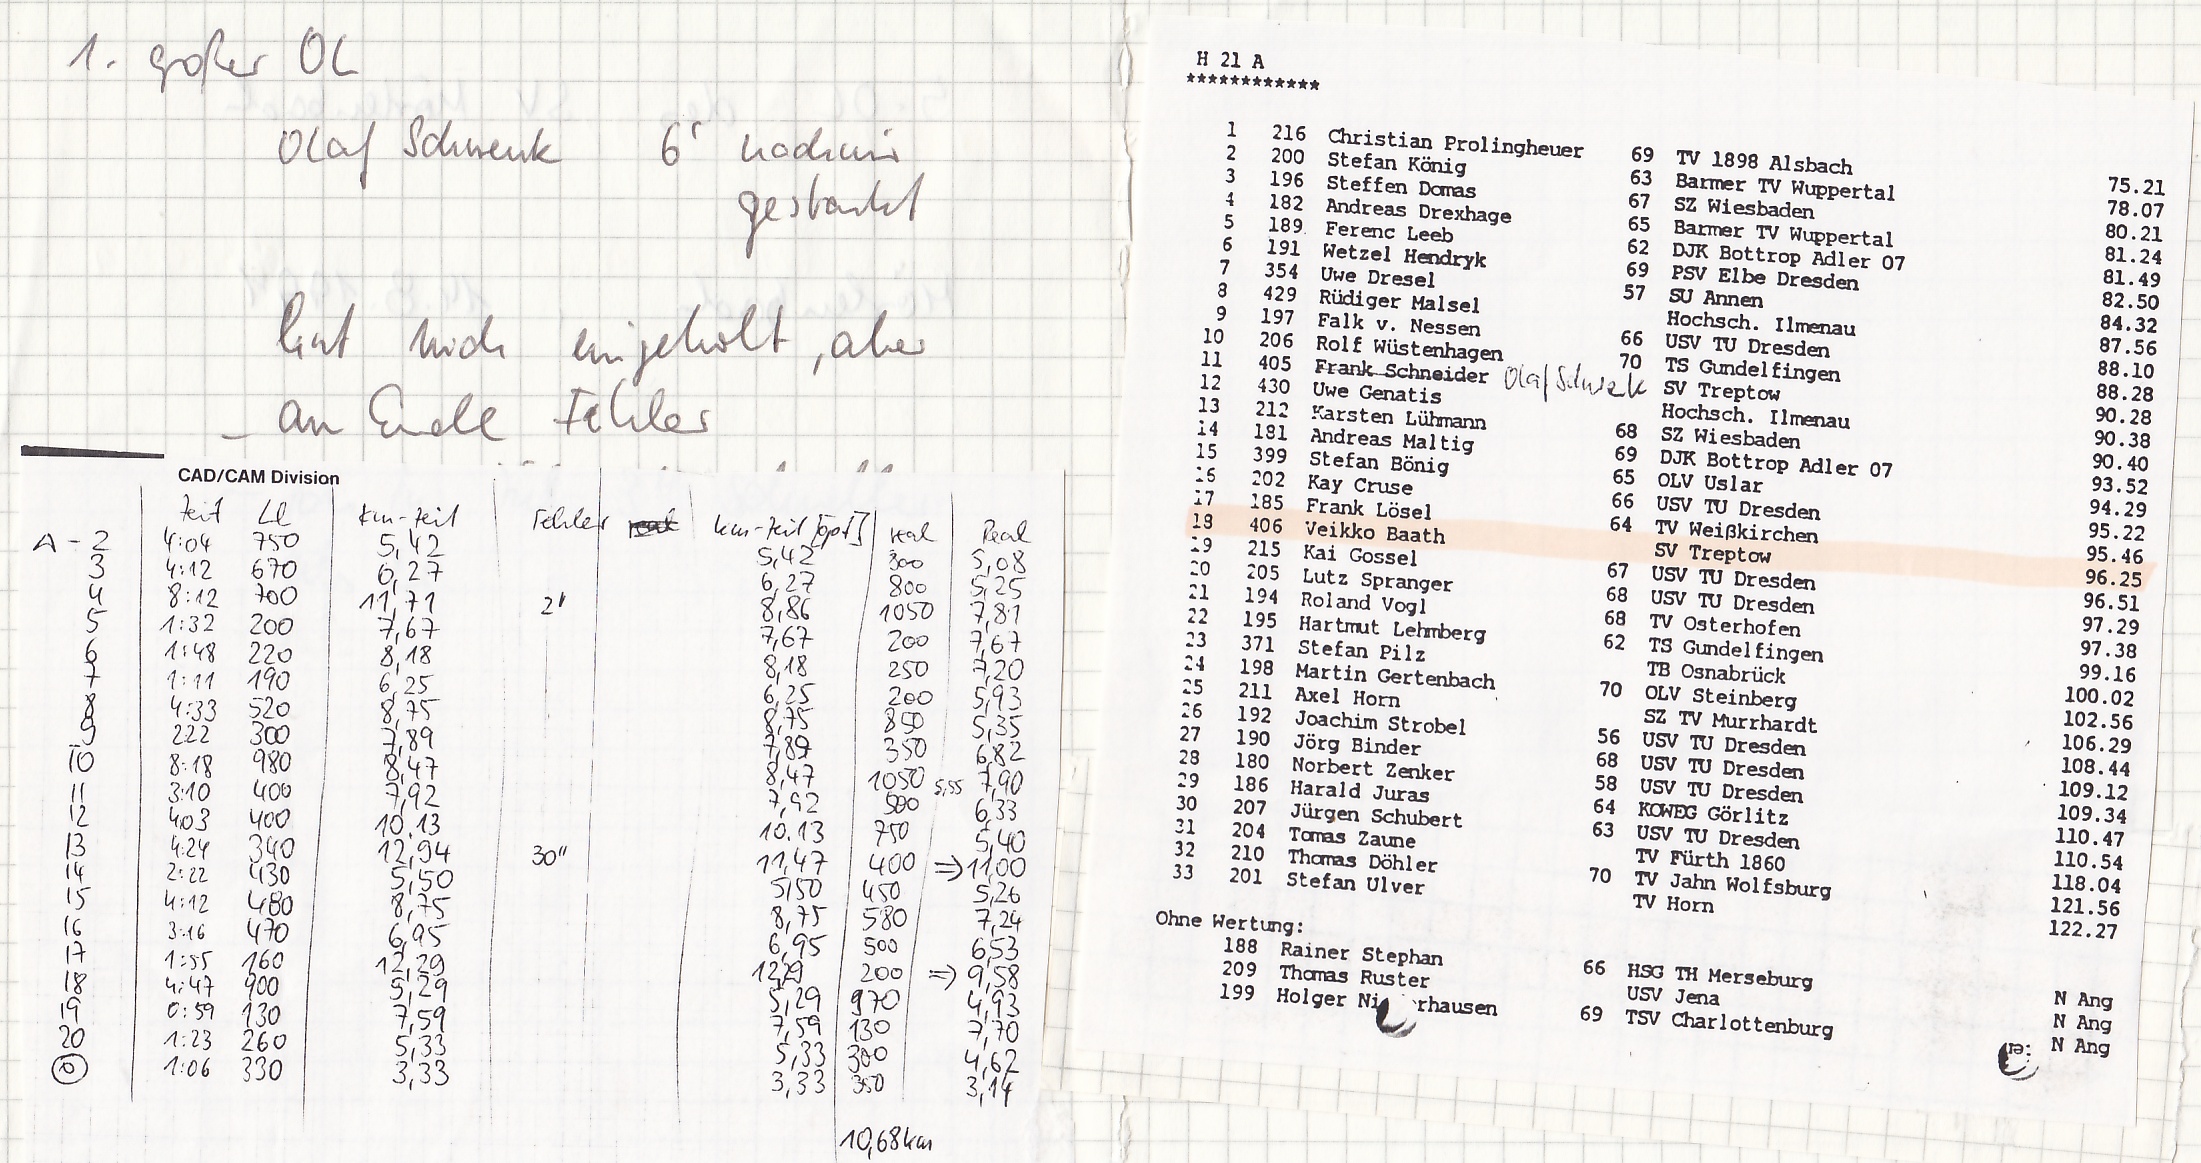 1. großer OL
Olaf Schwenk 6' nach mir
gestartet
hat mich eingeholt, aber
am Ende Fehler
CAD/CAM Division
Zeit LL km-Zeit Fehler km-Zeit [opt] real Real
A - 2 4:04 750 5,42 5,42 300 5,08
3 4:12 670 6,27 6,27 800 5,25
4 8:12 700 11,71 2' 8,86 1050 7,81
5 1:32 200 7,67 7,67 200 7,67
6 1:48 220 8,18 8,18 250 7,20
7 1:11 190 6,25 6,25 200 5,93
8 4:33 520 8,75 8,75 850 5,35
9 222 300 7,89 7,89 350 6,82
10 8:18 980 8,47 8,47 1050 7,90
11 3:10 400 7,92 7,92 5,55 500 6,33
12 4:03 400 10,13 10,13 750 5,40
13 4:24 340 12,94 30" 11,47 400 => 11,00
14 2:22 430 5,50 5,50 450 5,26
15 4:12 480 8,75 8,75 580 7,24
16 3:16 470 6,95 6,95 500 6,53
17 1:55 160 12,29 12,29 200 => 9,58
18 4:47 900 5,29 5,29 970 4,93
19 0:59 130 7,59 7,59 130 7,70
20 1:23 260 5,33 5,33 300 4,62
1:06 330 3,33 3,33 350 3,14
10,68km
H 21 A
************
1 216 Christian Prolingheuer 69 TV 1898 Alsbach 75.21
2 200 Stefan König 63 Barmer TV Wuppertal 78.07
3 196 Steffen Domas 67 SZ Wiesbaden 80.21
4 182 Andreas Drexhage 65 Barmer TV Wuppertal 81.24
5 189 Ferenc Leeb 62 DJK Bottrop Adler 07 81.49
6 191 Wetzel Hendryk 69 PSV Elbe Dresden 82.50
7 354 Uwe Dresel 57 SU Annen 84.32
8 429 Rüdiger Malsel Hochsch. Ilmenau 87.56
9 197 Falk v. Nessen 66 USV TU Dresden 88.10
10 206 Rolf Wüstenhagen 70 TS Gundelfingen 88.28
11 405 Frank Schneider Olaf Schwenk SV Treptow 90.28
12 430 Uwe Genatis Hochsch. Ilmenau 90.38
13 212 Karsten Lühmann 68 SZ Wiesbaden 90.40
14 181 Andreas Maltig 69 DJK Bottrop Adler 07 93.52
15 399 Stefan Bönig 65 OLV Uslar 94.29
16 202 Kay Cruse 66 USV TU Dresden 95.22
17 185 Frank Lösel 64 TV Weißkirchen 95.46
18 406 Veikko Baath SV Treptow 96.25
19 215 Kai Gossel 67 USV TU Dresden 96.51
20 205 Lutz Spranger 68 USV TU Dresden 97.29
21 194 Roland Vogl 68 TV Osterhofen 97.38
22 195 Hartmut Lehmberg 62 TS Gundelfingen 99.16
23 371 Stefan Pilz TB Osnabrück 100.02
24 198 Martin Gertenbach 70 OLV Steinberg 102.56
25 211 Axel Horn SZ TV Murrhardt 106.29
26 192 Joachim Strobel 56 USV TU Dresden 108.44
27 190 Jörg Binder 68 USV TU Dresden 109.12
28 180 Norbert Zenker 58 USV TU Dresden 109.34
29 186 Harald Juras 64 KOWEG Görlitz 110.47
30 207 Jürgen Schubert 63 USV TU Dresden 110.54
31 204 Tomas Zaune TV Fürth 1860 118.04
32 210 Thomas Döhler 70 TV Jahn Wolfsburg 121.56
33 201 Stefan Ulver TV Horn 122.27
Ohne Wertung:
188 Rainer Stephan 66 HSG TH Merseburg N Ang
209 Thomas Ruster USV Jena N Ang
199 Holger Ni rhausen 69 TSV Charlottenburg N Ang